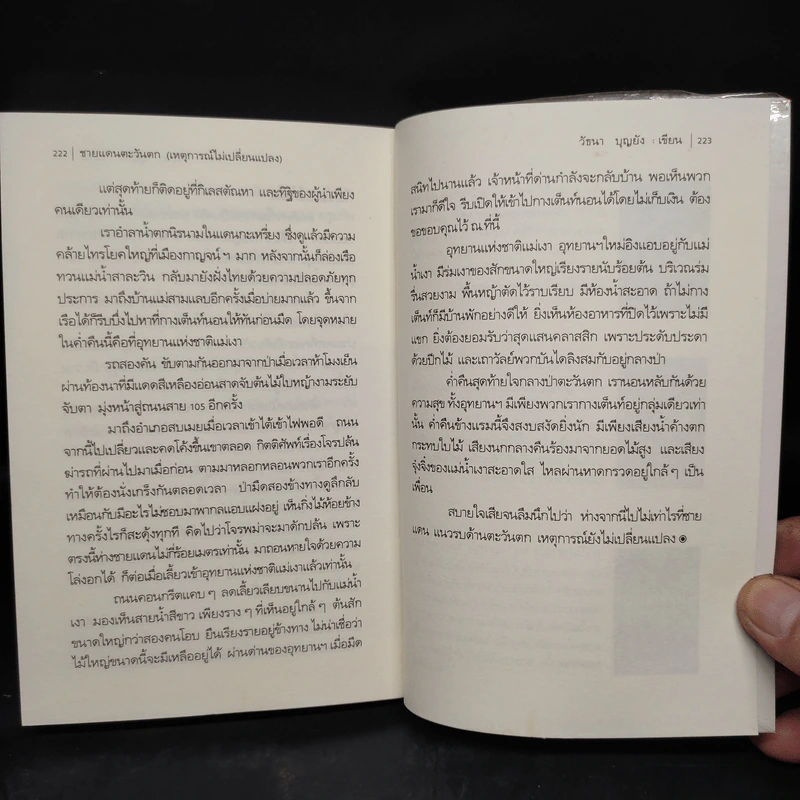 222 | ชายแดนตะวันตก (เหตุการณ์ไม่เปลี่ยนแปลง)
แต่สุดท้ายก็ติดอยู่ที่กิเลสตัณหา และทิฐิของผู้นำเพียง
คนเดียวเท่านั้น
เราอำลาน้ำตกนิรนามในแดนกะเหรี่ยง ซึ่งดูแล้วมีความ
คล้ายไทรโยคใหญ่ที่เมืองกาญจน์ฯ มาก หลังจากนั้นก็ล่องเรือ
ทวนแม่น้ำสาละวิน กลับมายังฝั่งไทยด้วยความปลอดภัยทุก
ประการ มาถึงบ้านแม่สามแลบอีกครั้งเมื่อบ่ายมากแล้ว ขึ้นจาก
เรือได้ก็รีบบึ่งไปหาที่กางเต็นท์นอนให้ทันก่อนมืด โดยจุดหมาย
ในค่ำคืนนี้คือที่อุทยานแห่งชาติแม่เงา
รถสองคัน ขับตามกันออกมาจากป่าเมื่อเวลาห้าโมงเย็น
ผ่านท้องนาที่มีแดดสีเหลืองอ่อนสาดจับต้นไม้ใบหญ้างามระยับ
จับตา มุ่งหน้าสู่ถนนสาย 105 อีกครั้ง
มาถึงอำเภอสบเมยเมื่อเวลาเข้าใต้เข้าไฟพอดี ถนน
จากนี้ไปเปลี่ยวและคดโค้งขึ้นเขาตลอด กิตติศัพท์เรื่องโจรปล้น
ฆ่ารถที่ผ่านไปมาเมื่อก่อน ตามมาหลอกหลอนพวกเราอีกครั้ง
ทำให้ต้องนั่งเกร็งกันตลอดเวลา ป่ามืดสองข้างทางดูลึกลับ
เหมือนกับมีอะไรไม่ชอบมาพากลแอบแฝงอยู่ เห็นกิ่งไม้ห้อยข้าง
ทางครั้งไรก็สะดุ้งทุกที คิดไปว่าโจรพม่าจะมาดักปล้น เพราะ
ตรงนี้ห่างชายแดนไม่กี่ร้อยเมตรเท่านั้น มาถอนหายใจด้วยความ
โล่งอกได้ ก็ต่อเมื่อเลี้ยวเข้าอุทยานแห่งชาติแม่เงาแล้วเท่านั้น
ถนนคอนกรีตแคบๆ ลดเลี้ยวเลียบขนานไปกับแม่น้ำ
เงา มองเห็นสายน้ำสีขาว เพียงรางๆ ที่เห็นอยู่ใกล้ๆ ต้นสัก
ขนาดใหญ่กว่าสองคนโอบ ยืนเรียงรายอยู่ข้างทาง ไม่น่าเชื่อว่า
ไม้ใหญ่ขนาดนี้จะมีเหลืออยู่ได้ ผ่านด่านของอุทยานฯ เมื่อมืด
วัธนา บุญยัง : เขียน | 223
สนิทไปนานแล้ว เจ้าหน้าที่ด่านกำลังจะกลับบ้าน พอเห็นพวก
เรามาก็ดีใจ รีบเปิดให้เข้าไปกางเต็นท์นอนได้โดยไม่เก็บเงิน ต้อง
ขอขอบคุณไว้ ณ.ที่นี้
อุทยานแห่งชาติแม่เงา อุทยานฯใหม่อิงแอบอยู่กับแม่
น้ำเงา มีร่มเงาของสักขนาดใหญ่เรียงรายนับร้อยต้น บริเวณร่ม
รื่นสวยงาม พื้นหญ้าตัดไว้ราบเรียบ มีห้องน้ำสะอาด ถ้าไม่กาง
เต็นท์ก็มีบ้านพักอย่างดีให้ ยิ่งเห็นห้องอาหารที่ปิดไว้เพราะไม่มี
แขก ยิ่งต้องยอมรับว่าสุดแสนคลาสสิก เพราะประดับประดา
ด้วยปีกไม้ และเถาวัลย์พวกบันไดลิงสมกับอยู่กลางป่า
ค่ำคืนสุดท้ายใจกลางป่าตะวันตก เรานอนหลับกันด้วย
ความสุข ทั้งอุทยานฯ มีเพียงพวกเรากางเต็นท์อยู่กลุ่มเดียวเท่า
นั้น ค่ำคืนข้างแรมนี้จึงสงบสงัดยิ่งนัก มีเพียงเสียงน้ำค้างตก
กระทบใบไม้ เสียงนกกลางคืนร้องมาจากยอดไม้สูง และเสียง
จุ๋งจิ๋งของแม่น้ำเงาสะอาดใส ไหลผ่านหาดกรวดอยู่ใกล้ๆ เป็น
เพื่อน
สบายใจเสียจนลืมนึกไปว่า ห่างจากนี้ไปไม่เท่าไรที่ชาย
แดน แนวรบด้านตะวันตก เหตุการณ์ยังไม่เปลี่ยนแปลง ◉